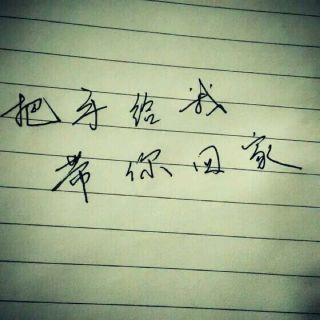 把手给我
带你回家